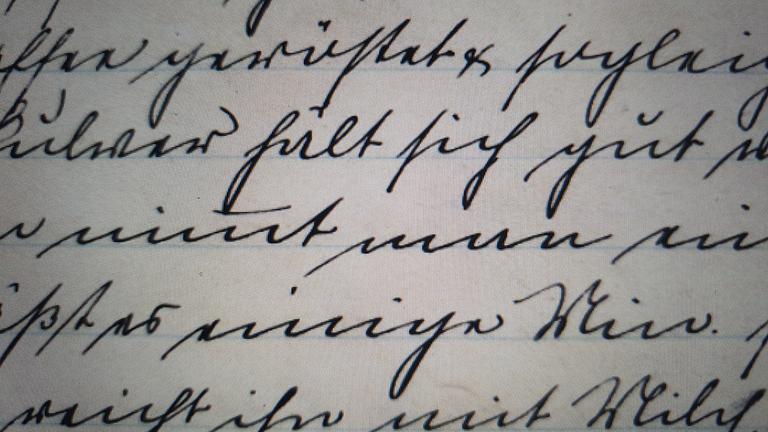 affee geröstet & sogleich
Pulver hält sich gut
nim̅t man ein
läßt es einige Min.
reicht ihn mit Milch